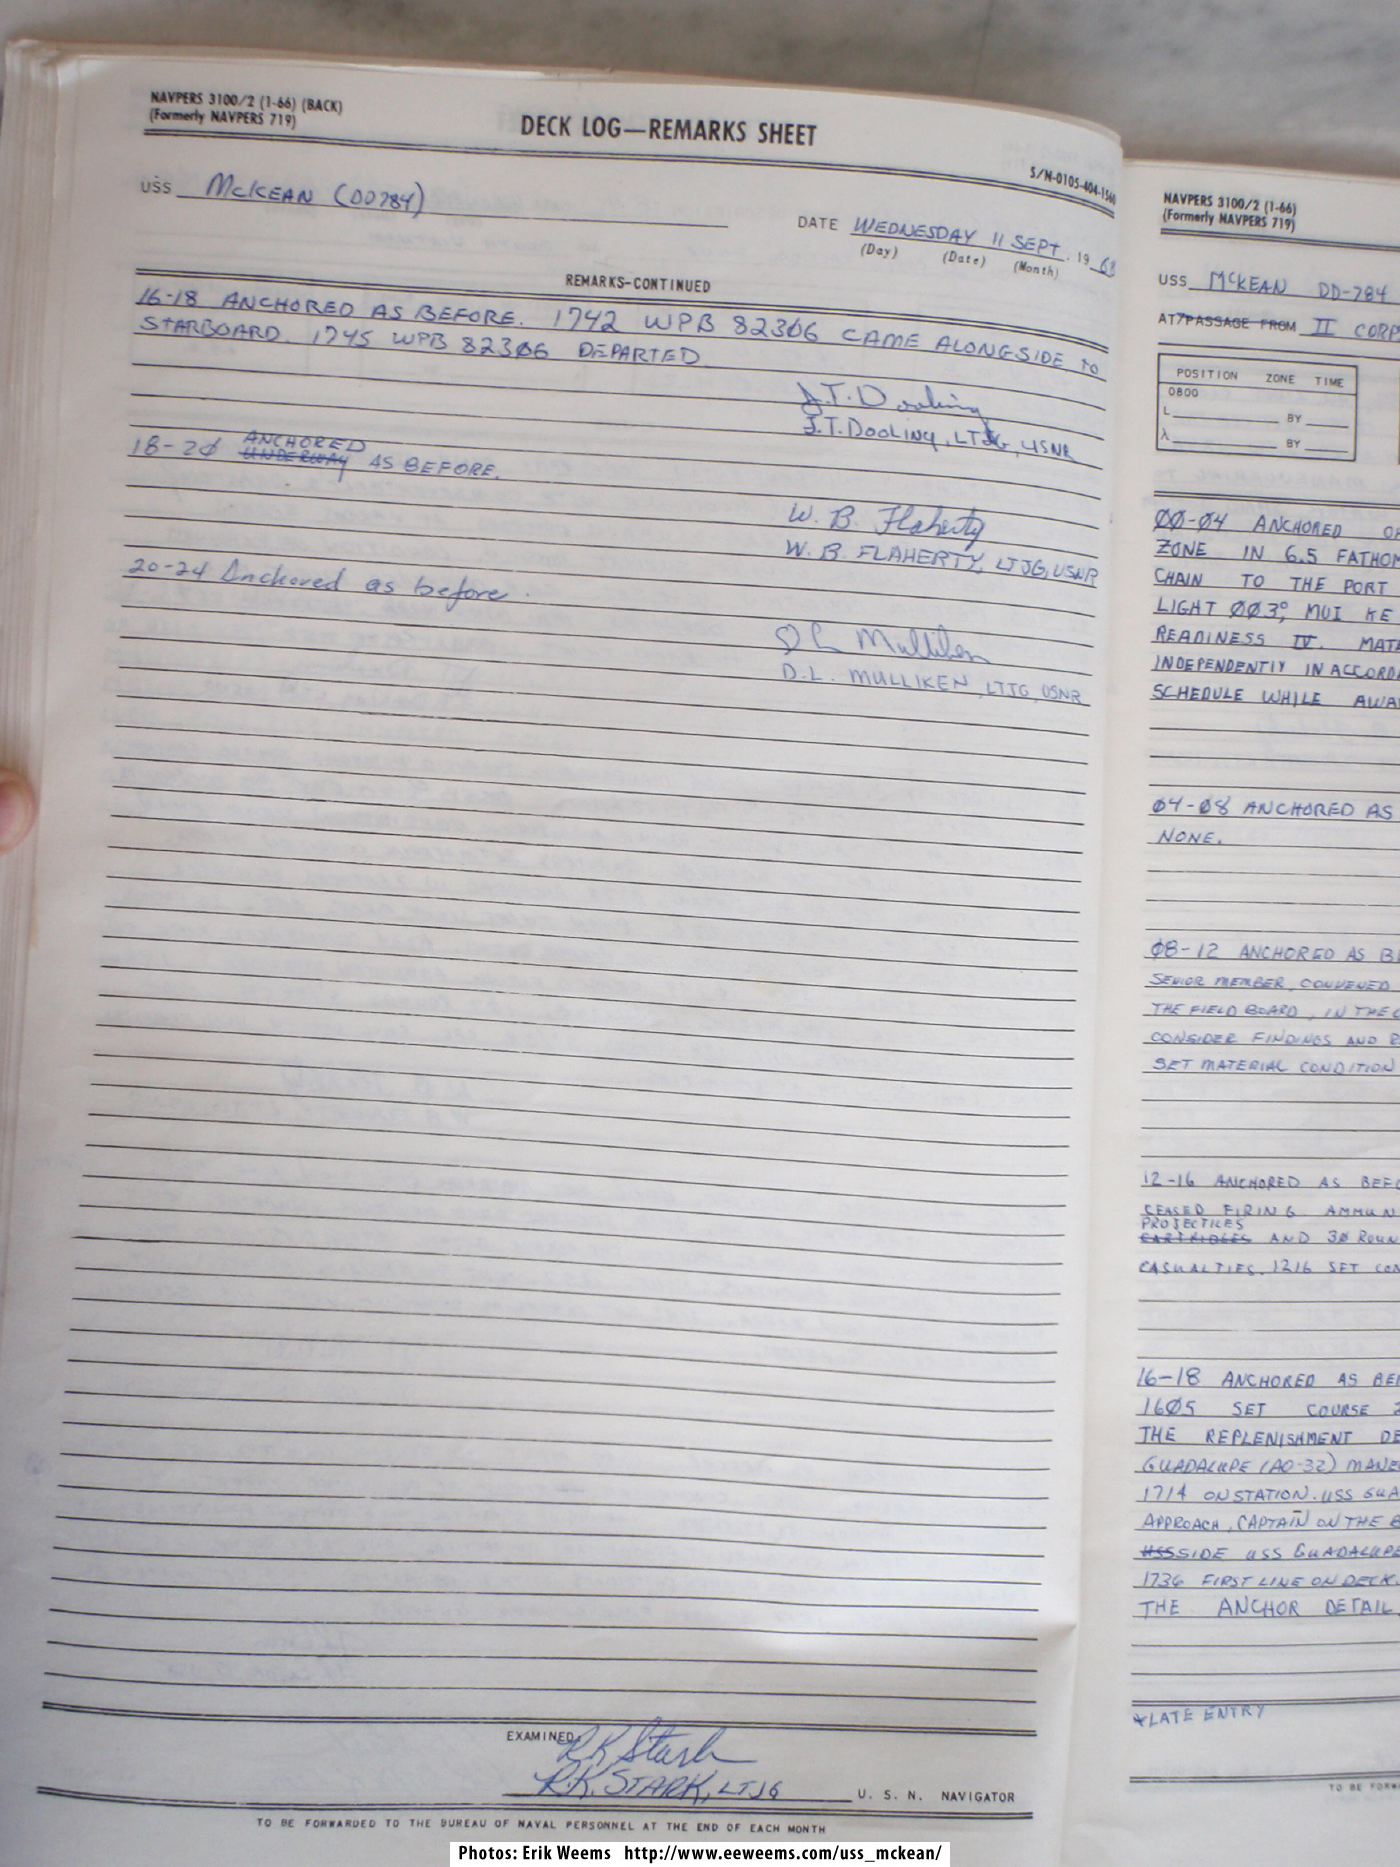 NAVPERS 3100/2 (1-66) (BACK)
(Formerly NAVPERS 719)
DECK LOG—REMARKS SHEET
S/N-0105-404-1560
USS McKEAN (DD784)
DATE WEDNESDAY 11 SEPT. 1968
(Day) (Date) (Month)
REMARKS-CONTINUED
16-18 ANCHORED AS BEFORE. 1742 WPB 82306 CAME ALONGSIDE TO
STARBOARD. 1745 WPB 82306 DEPARTED
J.T. Dooling
J.T. DOOLING, LTJG, USNR
ANCHORED
18-20 UNDERWAY AS BEFORE.
W. B. Flaherty
W. B. FLAHERTY, LTJG, USNR
20-24 Anchored as before.
D L Mulliken
D.L. MULLIKEN, LTJG, USNR
EXAMINED
RK Stark
R.K. STARK, LTJG U. S. N. NAVIGATOR
TO BE FORWARDED TO THE BUREAU OF NAVAL PERSONNEL AT THE END OF EACH MONTH
NAVPERS 3100/2 (1-66)
(Formerly NAVPERS 719)
USS McKEAN DD-784
AT/PASSAGE FROM II CORPS
POSITION ZONE TIME
0800
L BY
λ BY
00-04 ANCHORED OF
ZONE IN 6.5 FATHOM
CHAIN TO THE PORT
LIGHT 003°, MUI KE
READINESS IV. MATE
INDEPENDENTLY IN ACCORDA
SCHEDULE WHILE AWA
04-08 ANCHORED AS
NONE.
08-12 ANCHORED AS BE
SENIOR MEMBER, CONVENED
THE FIELD BOARD, IN THE
CONSIDER FINDINGS AND R
SET MATERIAL CONDITION
12-16 ANCHORED AS BEFO
CEASED FIRING. AMMUN
PROJECTILES
CARTRIDGES AND 30 ROUN
CASUALTIES. 1216 SET CON
16-18 ANCHORED AS BEF
1605 SET COURSE 2
THE REPLENISHMENT DE
GUADALUPE (AO-32) MANE
1714 ON STATION. USS GUA
APPROACH, CAPTAIN ON THE B
USSSIDE USS GUADALUPE
1736 FIRST LINE ON DECK.
THE ANCHOR DETAIL
*LATE ENTRY
TO BE FORWA
Photos: Erik Weems http://www.eeweems.com/uss_mckean/